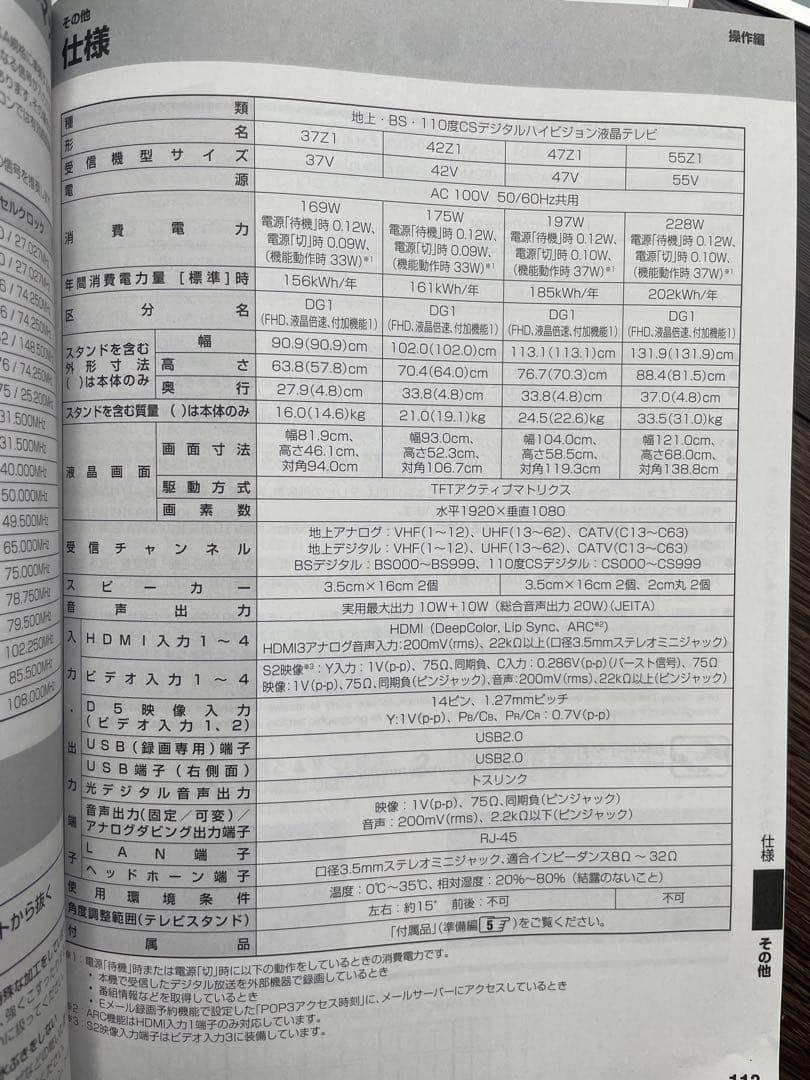 その他
仕様
操作編
種類 地上・BS・110度CSデジタルハイビジョン液晶テレビ
形名 37Z1 42Z1 47Z1 55Z1
受信機型サイズ 37V 42V 47V 55V
電源 AC 100V 50/60Hz共用
消費電力
169W 175W 197W 228W
電源「待機」時 0.12W、 電源「待機」時 0.12W、 電源「待機」時 0.12W、 電源「待機」時 0.12W、
電源「切」時 0.09W、 電源「切」時 0.09W、 電源「切」時 0.10W、 電源「切」時 0.10W、
(機能動作時 33W)※1 (機能動作時 33W)※1 (機能動作時 37W)※1 (機能動作時 37W)※1
年間消費電力量 [標準]時 156kWh/年 161kWh/年 185kWh/年 202kWh/年
区分名 DG1 DG1 DG1 DG1
(FHD、液晶倍速、付加機能1) (FHD、液晶倍速、付加機能1) (FHD、液晶倍速、付加機能1) (FHD、液晶倍速、付加機能1)
スタンドを含む
外形寸法
( )は本体のみ
幅 90.9(90.9)cm 102.0(102.0)cm 113.1(113.1)cm 131.9(131.9)cm
高さ 63.8(57.8)cm 70.4(64.0)cm 76.7(70.3)cm 88.4(81.5)cm
奥行 27.9(4.8)cm 33.8(4.8)cm 33.8(4.8)cm 37.0(4.8)cm
スタンドを含む質量 ( )は本体のみ 16.0(14.6)kg 21.0(19.1)kg 24.5(22.6)kg 33.5(31.0)kg
液晶画面
画面寸法
幅81.9cm、 幅93.0cm、 幅104.0cm、 幅121.0cm、
高さ46.1cm、 高さ52.3cm、 高さ58.5cm、 高さ68.0cm、
対角94.0cm 対角106.7cm 対角119.3cm 対角138.8cm
駆動方式 TFTアクティブマトリクス
画素数 水平1920×垂直1080
受信チャンネル
地上アナログ：VHF(1～12)、UHF(13～62)、CATV(C13～C63)
地上デジタル：VHF(1～12)、UHF(13～62)、CATV(C13～C63)
BSデジタル：BS000～BS999、110度CSデジタル：CS000～CS999
スピーカー 3.5cm×16cm 2個 3.5cm×16cm 2個、2cm丸 2個
音声出力 実用最大出力 10W＋10W（総合音声出力 20W）(JEITA)
入力・出力端子
HDMI入力1～4 HDMI（DeepColor, Lip Sync、ARC※2）
HDMI3アナログ音声入力：200mV(rms)、22kΩ以上(口径3.5mmステレオミニジャック)
ビデオ入力1～4 S2映像※3：Y入力：1V(p-p)、75Ω、同期負、C入力：0.286V(p-p)(バースト信号)、75Ω
映像：1V(p-p)、75Ω、同期負(ピンジャック)、音声：200mV(rms)、22kΩ以上(ピンジャック)
D5映像入力
(ビデオ入力1、2)
14ピン、1.27mmピッチ
Y:1V(p-p)、PB/CB、PR/CR：0.7V(p-p)
USB(録画専用)端子 USB2.0
USB端子(右側面) USB2.0
光デジタル音声出力 トスリンク
音声出力(固定／可変)／
アナログダビング出力端子
映像：1V(p-p)、75Ω、同期負(ピンジャック)
音声：200mV(rms)、2.2kΩ以下(ピンジャック)
LAN端子 RJ-45
ヘッドホーン端子 口径3.5mmステレオミニジャック、適合インピーダンス8Ω～32Ω
使用環境条件 温度：0℃～35℃、相対湿度：20%～80%（結露のないこと）
角度調整範囲(テレビスタンド) 左右：約15° 前後：不可 不可 不可
付属品 「付属品」(準備編 5 )をご覧ください。
※1：電源「待機」時または電源「切」時に以下の動作をしているときの消費電力です。
・本機で受信したデジタル放送を外部機器で録画しているとき
・番組情報などを取得しているとき
・Eメール録画予約機能で設定した「POP3アクセス時刻」に、メールサーバーにアクセスしているとき
※2：ARC機能はHDMI入力1端子のみ対応しています。
※3：S2映像入力端子はビデオ入力3に装備しています。
仕様
その他
セルクロック
31.500MHz
31.500MHz
40.000MHz
50.000MHz
49.500MHz
65.000MHz
75.000MHz
78.750MHz
79.500MHz
102.250MHz
85.500MHz
108.000MHz